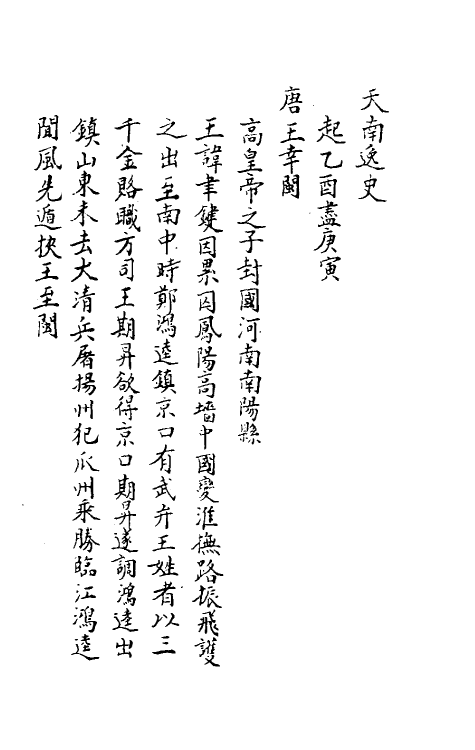 天南逸史
起乙酉盡庚寅
唐王幸閩
高皇帝之子封國河南南陽縣
王諱聿鍵因累囚鳳陽高墻中國變淮撫路振飛護
之出至南中時鄭鴻逵鎮京口有武弁王姓者以三
千金賂職方司王期昇欲得京口期昇遂調鴻逵出
鎮山東未去大清兵屠揚州犯瓜州乘勝臨江鴻逵
聞風先遁挾王至閩